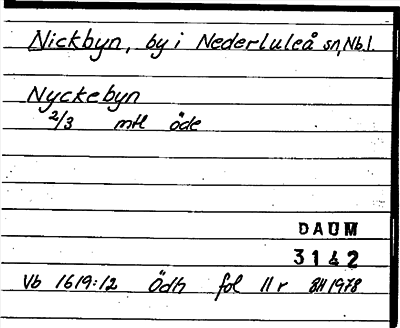 Nickbyn, by i Nederluleå sn, Nb.l.
Nyckebyn
2/3 mtl öde
DAUM
3142
Vb 1619:12 Ödh fol 11r BH 1978